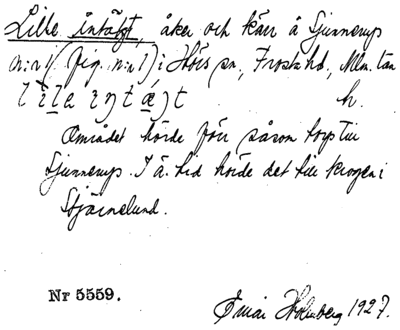 Lille intäkt, åker och kärr å Sjunnerup
n:r 1 (fig. n:r 1) i Hörs sn, Frosta hd, Mlm. län
h.
Området hörde förr såsom torp till
Sjunnerup. I ä. tid hörde det till krogen i
Stjärnelund.
Nr 5559.
Einar Holmberg 1927.